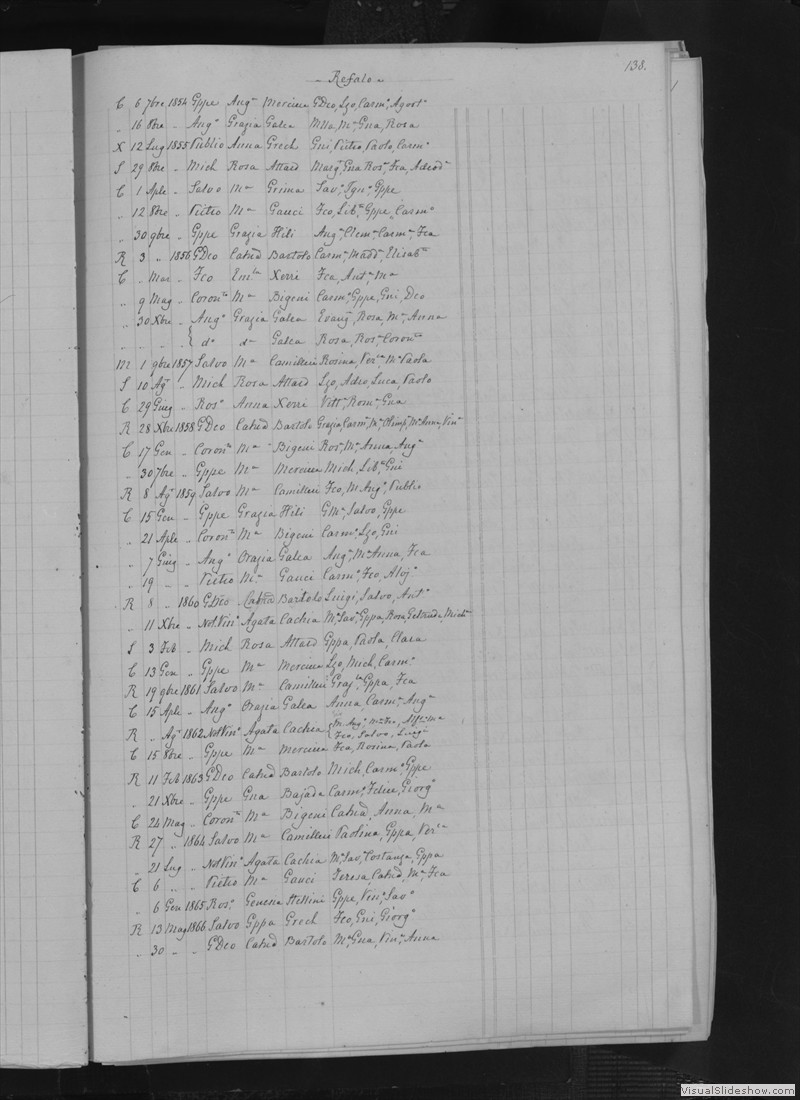 138.
Refalo
C 6 7bre 1854 Gppe Ang^a Mercieca GDeo, Szo, Carm^a, Agost^o
„ 16 8bre „ Ang^o Grazia Galea M^a Gna, Rosa
X 12 Lug 1855 Publio Anna Grech Gni, Pietro, Paolo, Carm^a
S 29 8bre „ Mich Rosa Attard Marg^a, Gna Ros^a, Fca, Adeod^o
C 1 Aple „ Salvo M^a Grima Sav^a, Ign^a, Gppe
„ 12 8bre „ Pietro M^a Gauci Fco, Lib^a, Gppe, Carm^o
„ 30 9bre „ Gppe Grazia Hili Ang^a, Clem^a, Carm^a, Fca
R 3 „ 1856 GDeo Cat^a Bartolo Carm^a, Madd^a, Elisab^a
C „ Mar „ Fco Em^la Xerri Fca, Ant^a, M^a
„ 9 Mag „ Coron^to M^a Bigeni Carm^o, Gppe, Gni, Deo
„ 30 Xbre „ Ang^o Grazia Galea Evang^a, Rosa, M^a, Anna
„ „ „ „ { d^o d^a Galea Rosa, Ros^a, Coron^ta
M 1 9bre 1857 Salvo M^a Camilleri Rosina, Ver^ca M^a Paola
S 10 Ag^o „ Mich Rosa Attard Szo, Adeo, Luca, Paolo
C 29 Giug „ Ros^o Anna Xerri Vitt^a, Rom^a, Gna
R 28 Xbre 1858 GDeo Cat^a Bartolo Grazia, Carm^a, M^a Olimp^a, M^a Anna, Vin^a
C 17 Gen „ Coron^to M^a Bigeni Ros^a, M^a Anna, Ang^a
„ 30 7bre „ Gppe M^a Mercieca Mich, Lib^a, Gni
R 8 Ag^o 1859 Salvo M^a Camilleri Fco, M Ang^o, Publio
C 15 Gen „ Gppe Grazia Hili GM^a, Salvo, Gppe
„ 21 Aple „ Coron^to M^a Bigeni Carm^o, Szo, Gni
„ 7 Giug „ Ang^o Grazia Galea Ang^a, M^a Anna, Fca
„ 19 „ „ Pietro M^a Gauci Carm^o, Fco, Aloj^o
R 8 „ 1860 GDeo Cat^a Bartolo Luigi, Salvo, Ant^o
„ 11 Xbre „ Not. Vin^o Agata Cachia M^a Sav^a, Gppa, Rosa, Getruda, Mich^a
S 3 Feb „ Mich Rosa Attard Gppa, Paola, Clara
C 13 Gen „ Gppe M^a Mercieca Szo, Mich, Carm^o
R 19 9bre 1861 Salvo M^a Camilleri Graz^la, Gppa, Fca
C 15 Aple „ Ang^o Grazia Galea Anna, Carm^a, Ang^a
R „ Ag^o 1862 Not Vin^o Agata Cachia { Fco, Salvo, Luigi
C 15 8bre „ Gppe M^a Mercieca Fca, Rosina, Paola
R 11 Feb 1863 GDeo Cat^a Bartolo Mich, Carm^o, Gppe
„ 21 Xbre „ Gppe Gna Bajada Carm^o, Felice, Giorg^o
C 24 Mag „ Coron^to M^a Bigeni Cat^a, Anna, M^a
R 27 „ 1864 Salvo M^a Camilleri Paolina, Gppa, Ver^ca
„ 21 Lug „ Not Vin^o Agata Cachia M^a Sav^a, Costanza, Gppa
C 6 „ „ Pietro M^a Gauci Teresa, Cat^a, M^a, Fca
„ 6 Gen 1865 Ros^o Genesia Stellini Gppe, Vin^o, Sav^o
R 13 Mag 1866 Salvo Gppa Grech Fco, Gni, Giorg^o
„ 30 „ „ GDeo Cat^a Bartolo M^a, Gna, Vin^a, Anna
VisualSlideshow.com